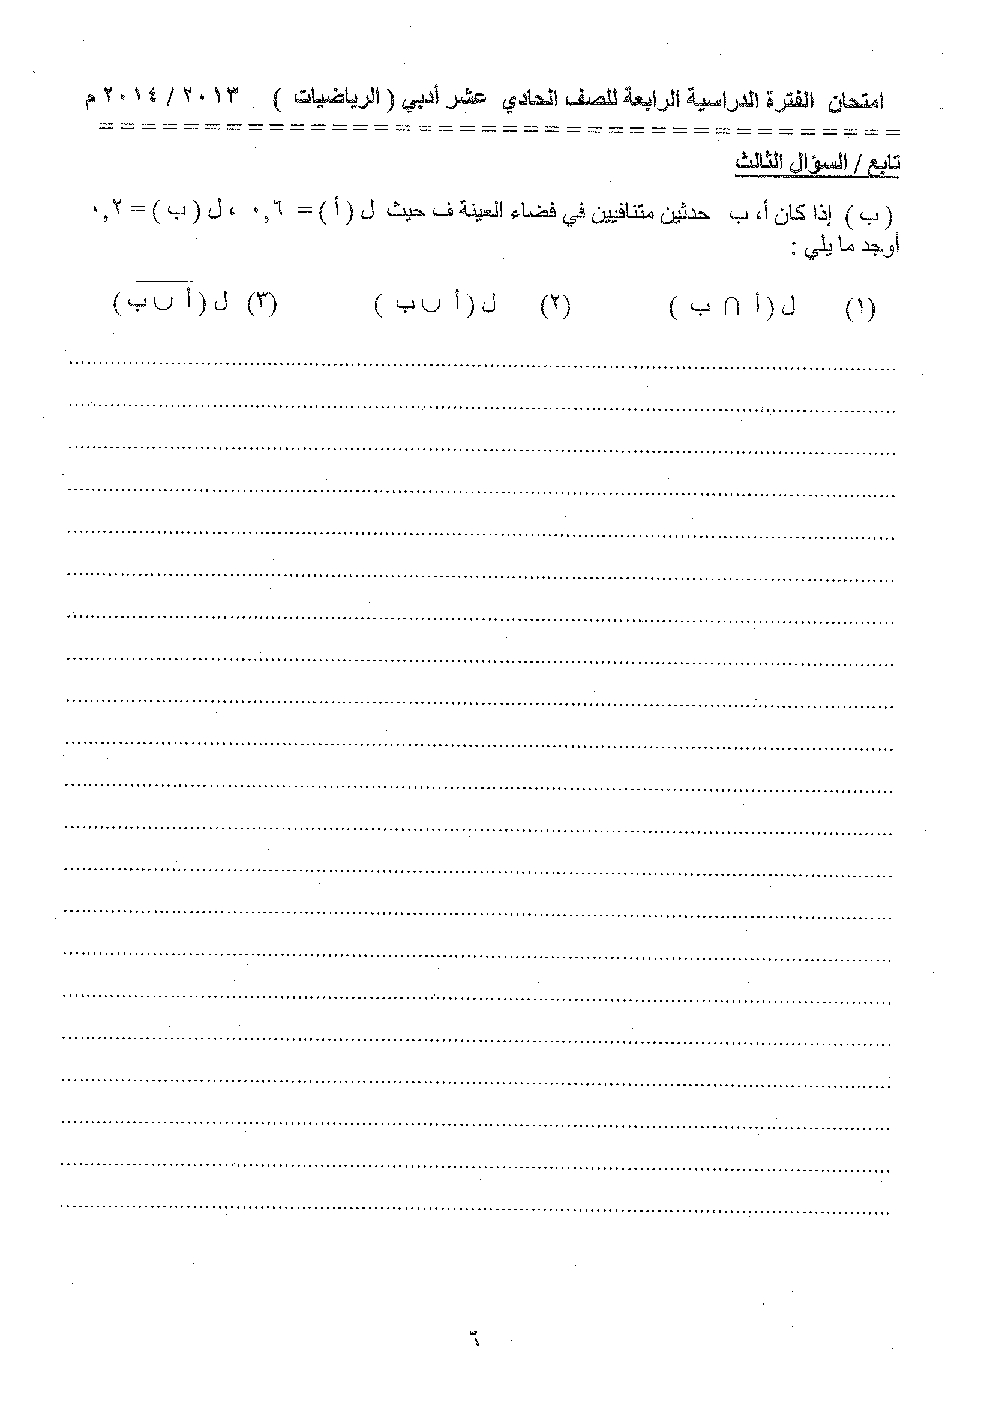 امتحان الفترة الدراسية الرابعة للصف الحادي عشر أدبي ( الرياضيات ) ٢٠١٣ / ٢٠١٤ م
======================================
تابع / السؤال الثالث
( ب ) إذا كان أ، ب حدثين متنافيين في فضاء العينة ف حيث ل ( أ ) = ٠,٦ ، ل ( ب ) = ٠,٢
أوجد ما يلي :
(١) ل ( أ ∩ ب ) (٢) ل ( أ ∪ ب ) (٣) ل ( أ ∪ ب )
٦